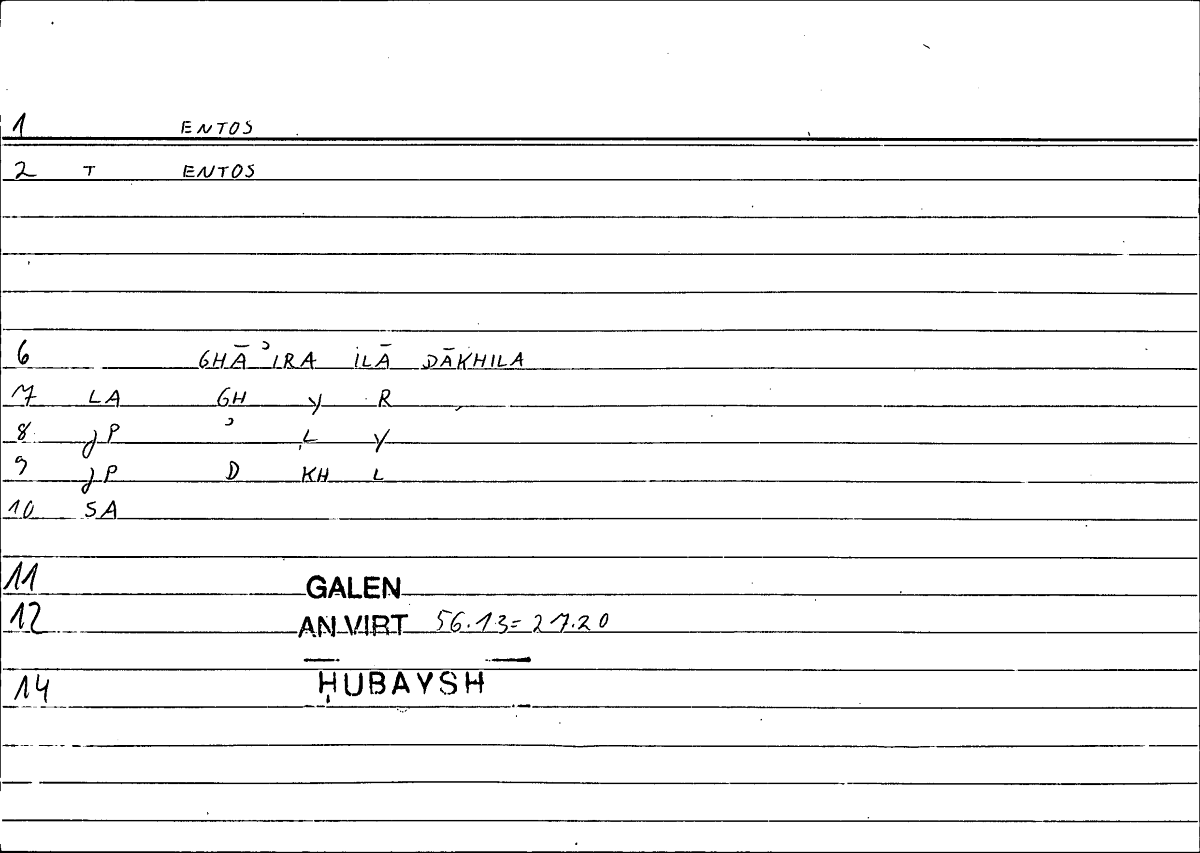 1 ENTOS
2 T ENTOS
6 GHĀʾIRA ILĀ DĀKHILA
7 LA GH Y R
8 JP ʾ L Y
9 JP D KH L
10 SA
11 GALEN
12 AN VIRT 56.13=27.20
14 ḤUBAYSH